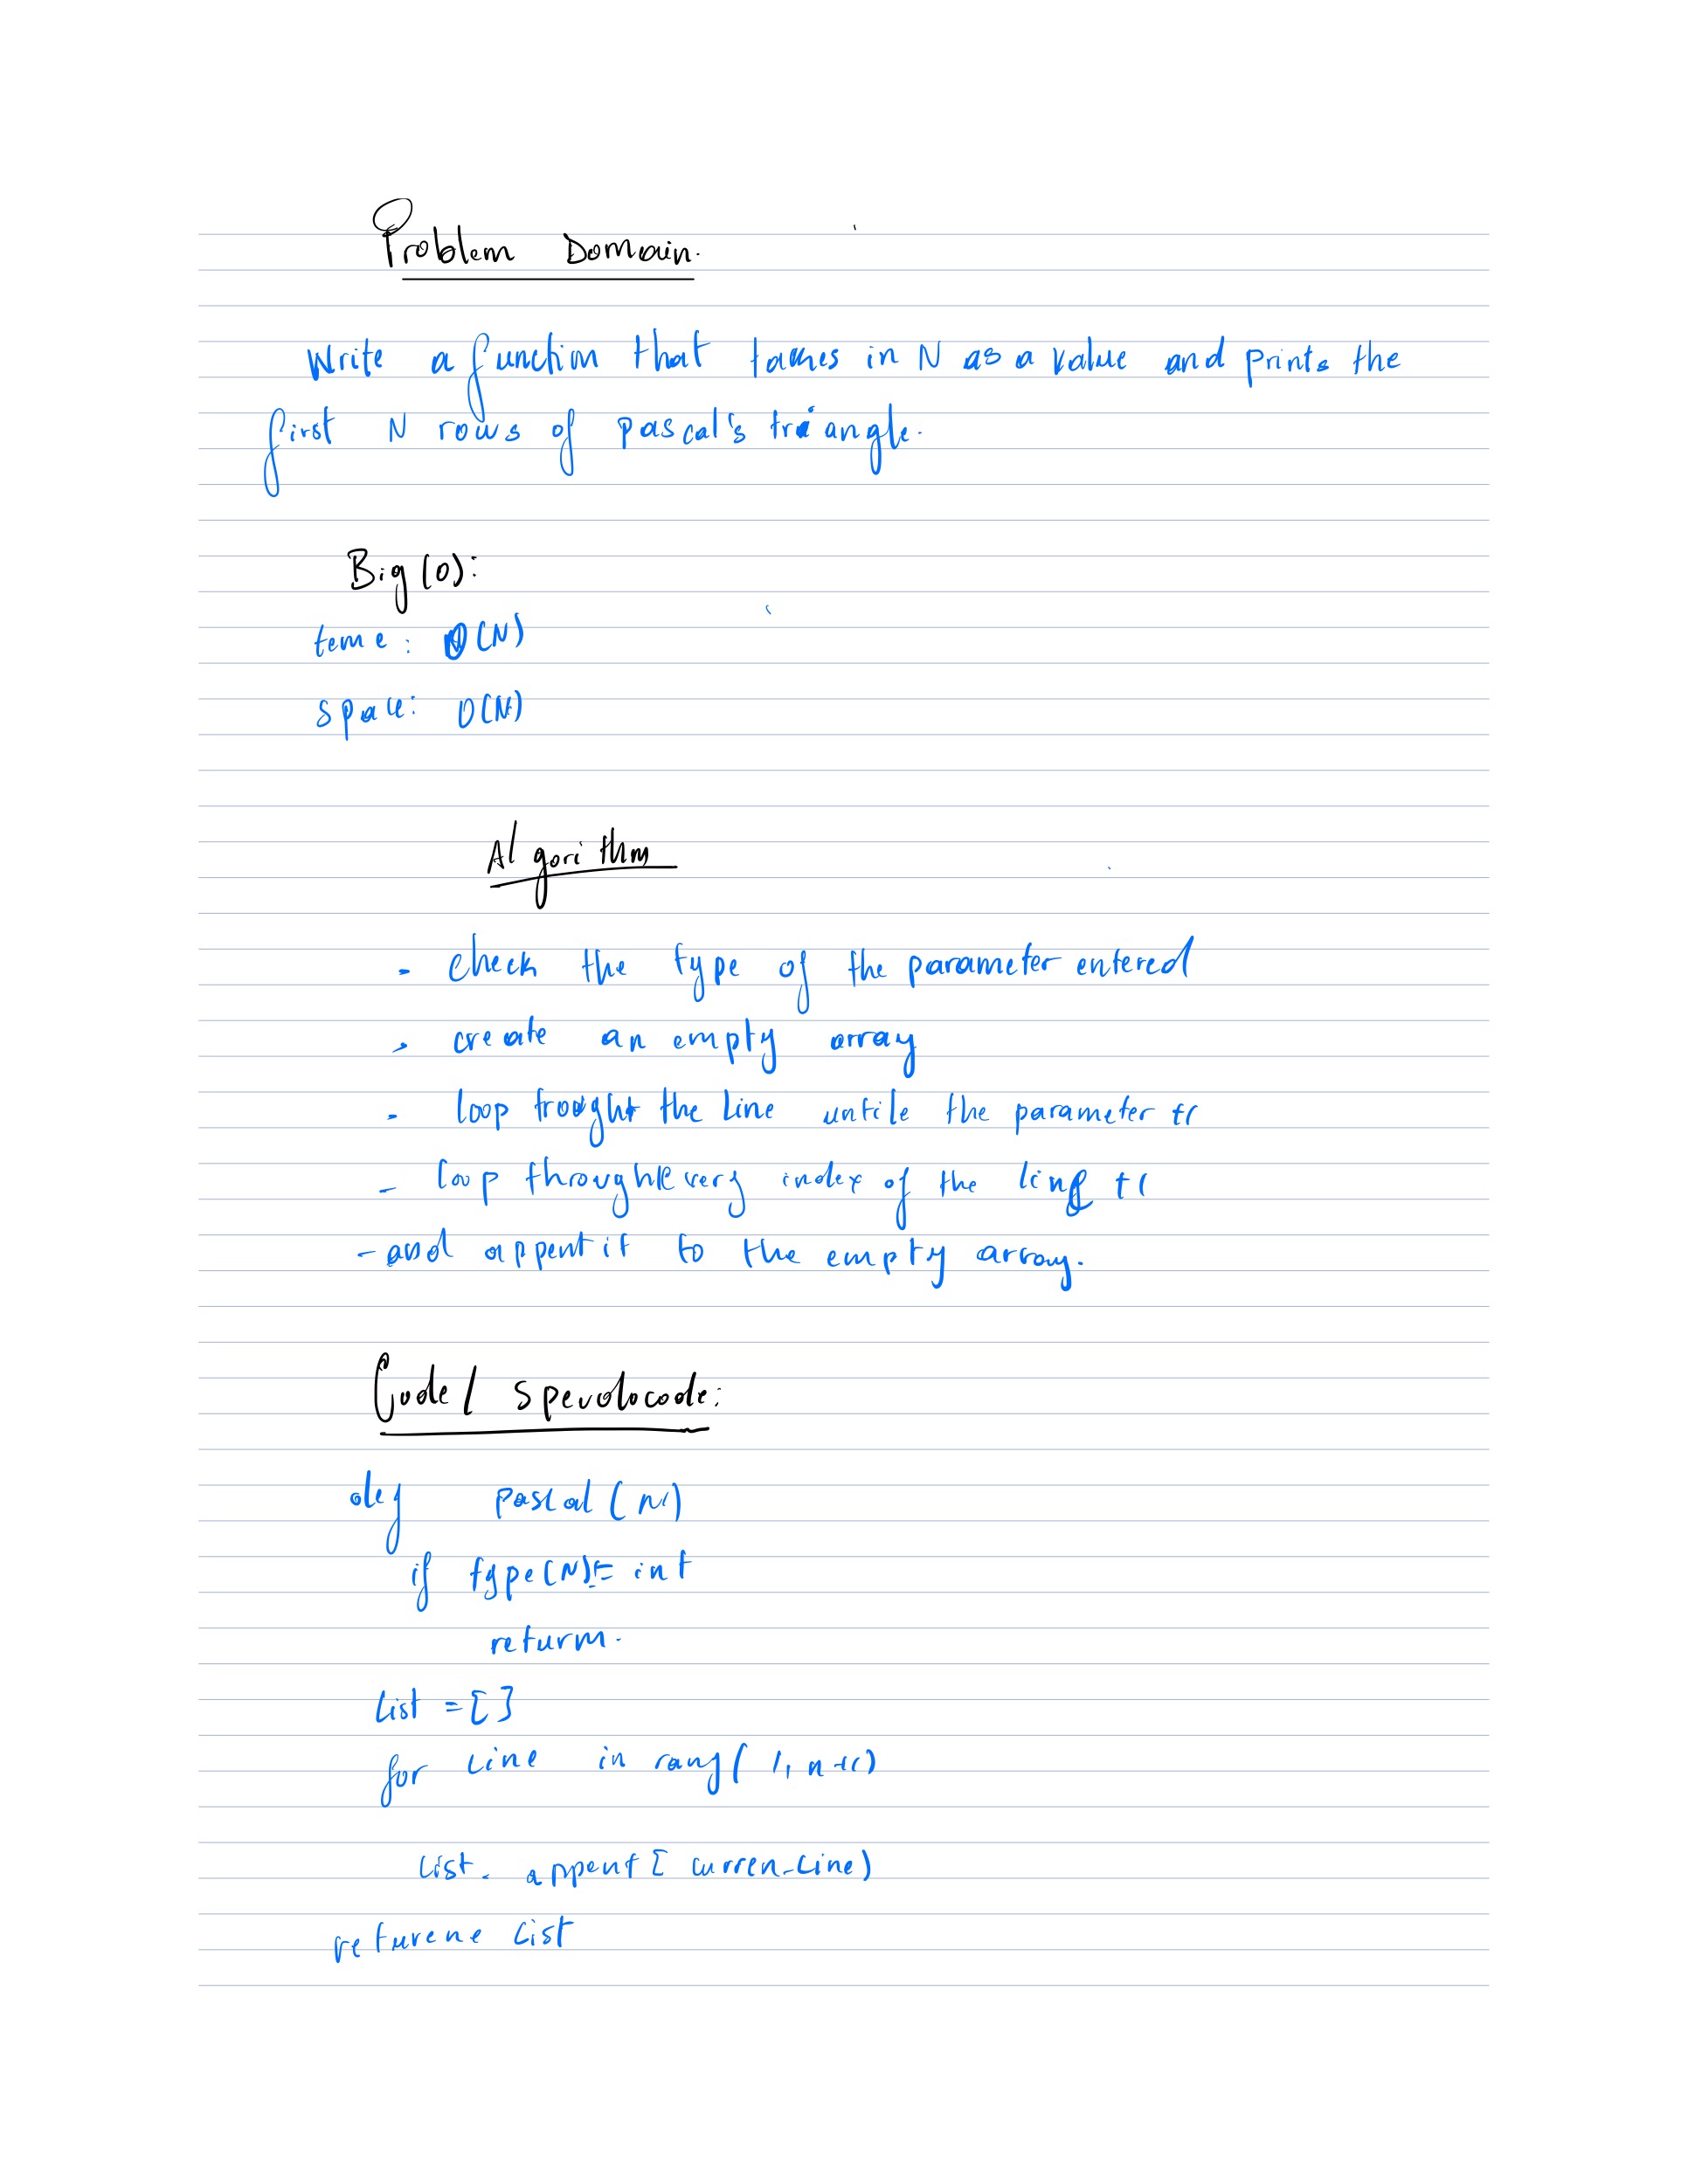 Problem Domain.
Write a function that takes in N as a value and prints the
first N rows of pascal's triangle.
Big(O):
teme: O(N)
space: O(N)
Algorithm
- check the type of the parameter entered
- create an empty array
- loop trought the line untile the parameter +1
- loop through every index of the line +1
- and appent it to the empty array.
Code / speudocode:
def pascal (N)
if type(N) != int
return.
list = []
for line in rang( 1, n+1)
list. appent [ curren-line)
returene list